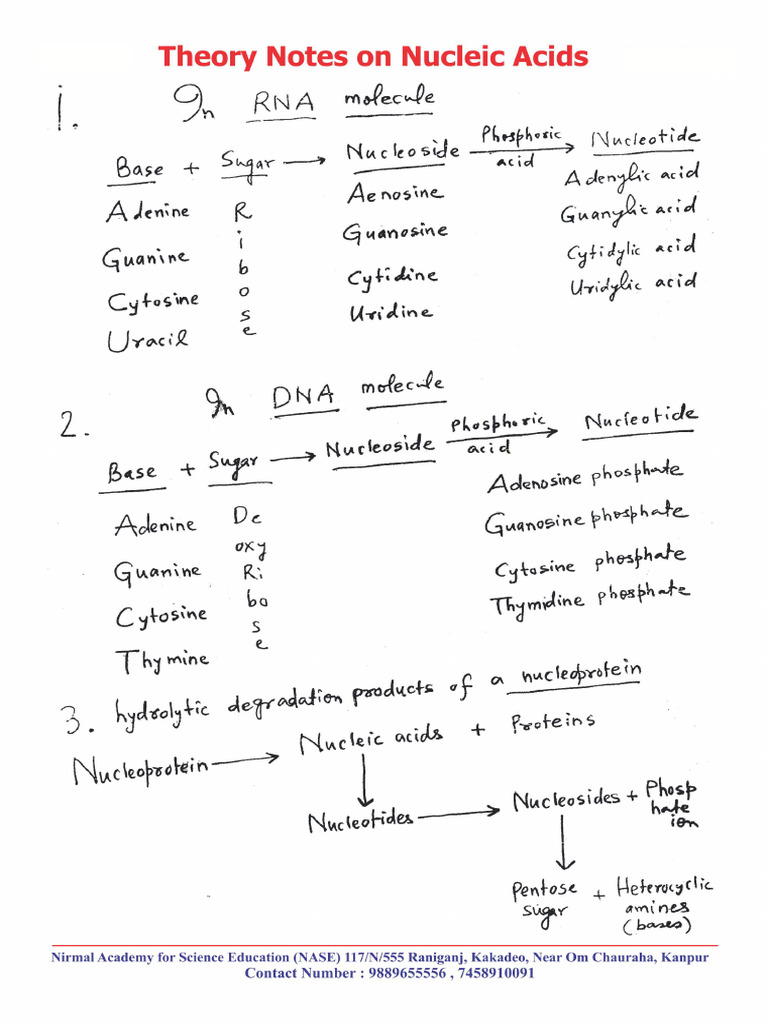 Theory Notes on Nucleic Acids
1. In RNA molecule
Base + Sugar → Nucleoside Phosphoric acid → Nucleotide
Adenine Ribose Aenosine Adenylic acid
Guanine Guanosine Guanylic acid
Cytosine Cytidine Cytidylic acid
Uracil Uridine Uridylic acid
2. In DNA molecule
Base + Sugar → Nucleoside Phosphoric acid → Nucleotide
Adenine De oxy Ri bo s e Adenosine phosphate
Guanine Guanosine phosphate
Cytosine Cytosine phosphate
Thymine Thymidine phosphate
3. hydrolytic degradation products of a nucleoprotein
Nucleoprotein → Nucleic acids + Proteins
Nucleotides → Nucleosides + Phosp
hate
ion
Pentose + Heterocyclic
sugar amines
(bases)
Nirmal Academy for Science Education (NASE) 117/N/555 Raniganj, Kakadeo, Near Om Chauraha, Kanpur
Contact Number : 9889655556 , 7458910091